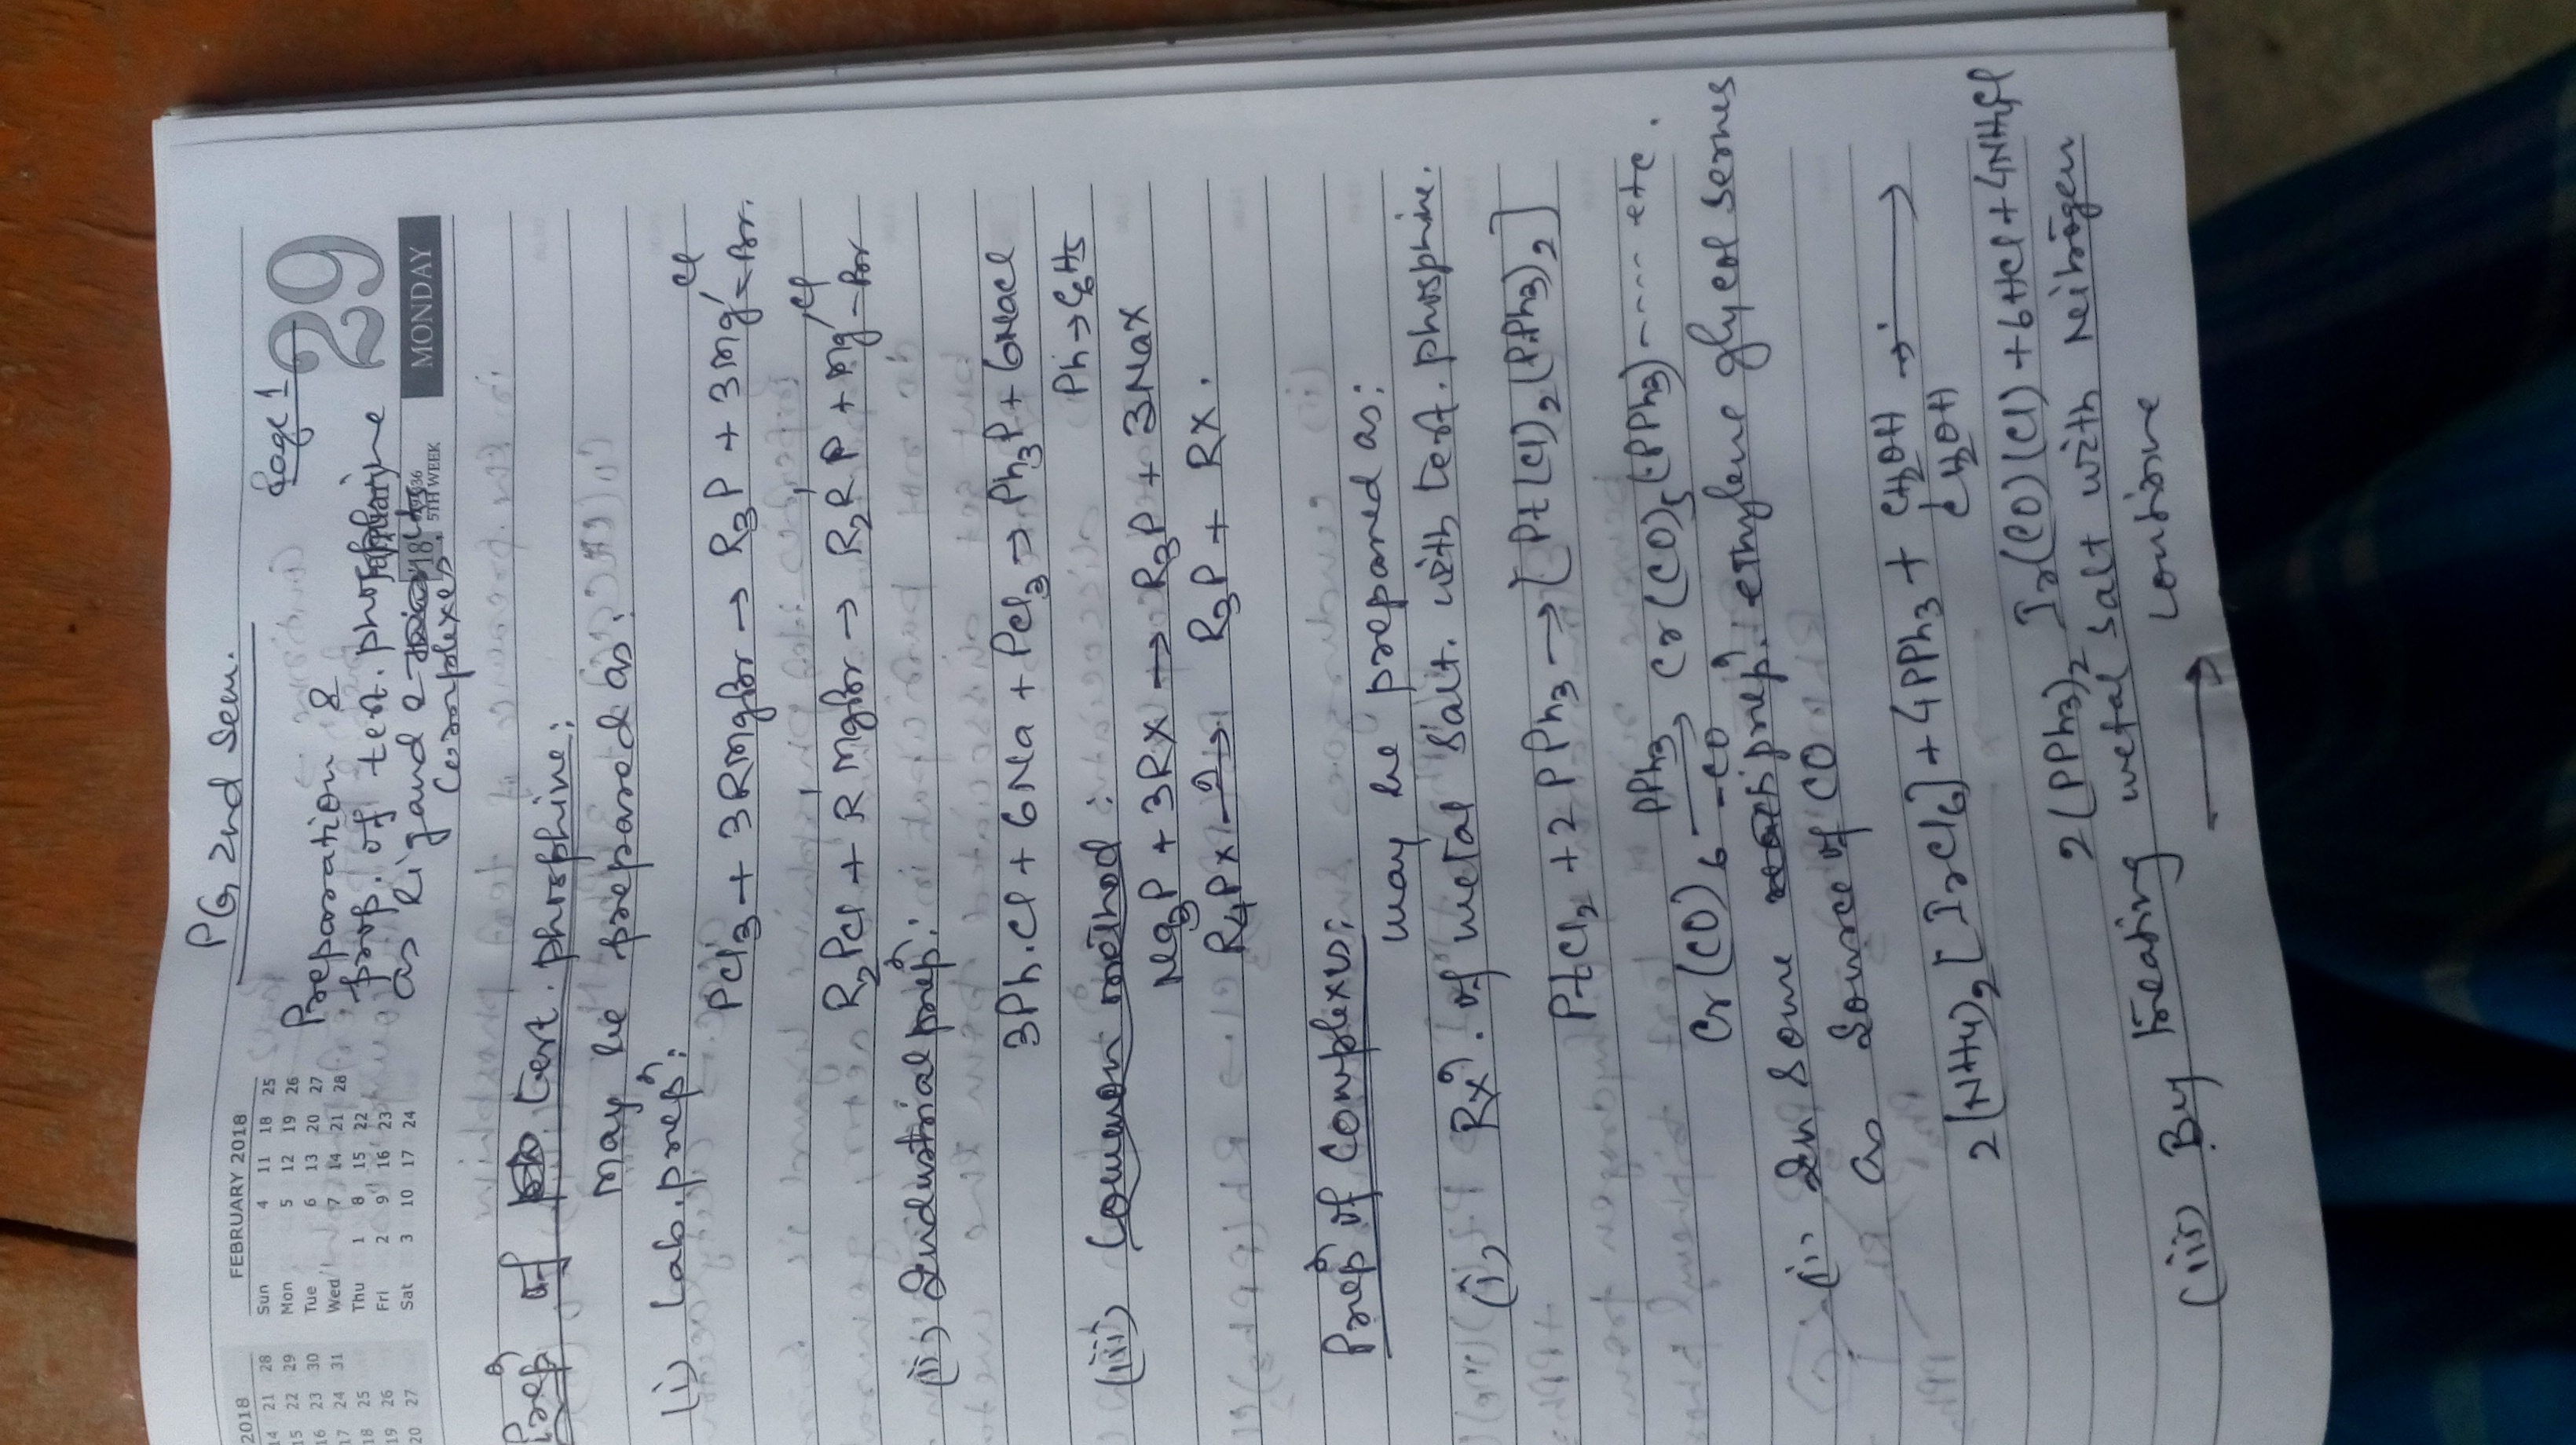 PG 2nd Sem.
Page 1
2018
14 21 28
15 22 29
16 23 30
17 24 31
18 25
19 26
20 27
FEBRUARY 2018
Sun 4 11 18 25
Mon 5 12 19 26
Tue 6 13 20 27
Wed 7 14 21 28
Thu 1 8 15 22
Fri 2 9 16 23
Sat 3 10 17 24
29
MONDAY
5TH WEEK
Preparation &
prop. of tert. phosphine
as ligand &
Complexes.
Prepn of tert. phosphine:
may be prepared as:
(i) Lab. prepn:
PCl3 + 3RMgBr → R3P + 3Mg-Br. Cl
R2PCl + R'MgBr → R2R'P + Mg-Br Cl
(ii) Industrial prepn:
3Ph.Cl + 6Na + PCl3 → Ph3P + 6NaCl
Ph → C6H5
(iii) Common method:
Na3P + 3RX → R3P + 3NaX
R4PX → R3P + RX.
Prepn of Complexes:
may be prepared as:
(i) Rxn. of metal Salt. with tert. phosphine.
PtCl2 + 2PPh3 → [Pt(Cl)2(PPh3)2]
Cr(CO)6 PPh3 → -CO Cr(CO)5(PPh3) ---- etc.
(ii) In some prepn. ethylene glycol serves
as source of CO
2(NH4)2[IrCl6] + 4PPh3 + CH2OH CH2OH →
2(PPh3)2 Ir(CO)(Cl) + 6HCl + 4NH4Cl
(iii) By treating metal salt with Neitrogen
contione
→